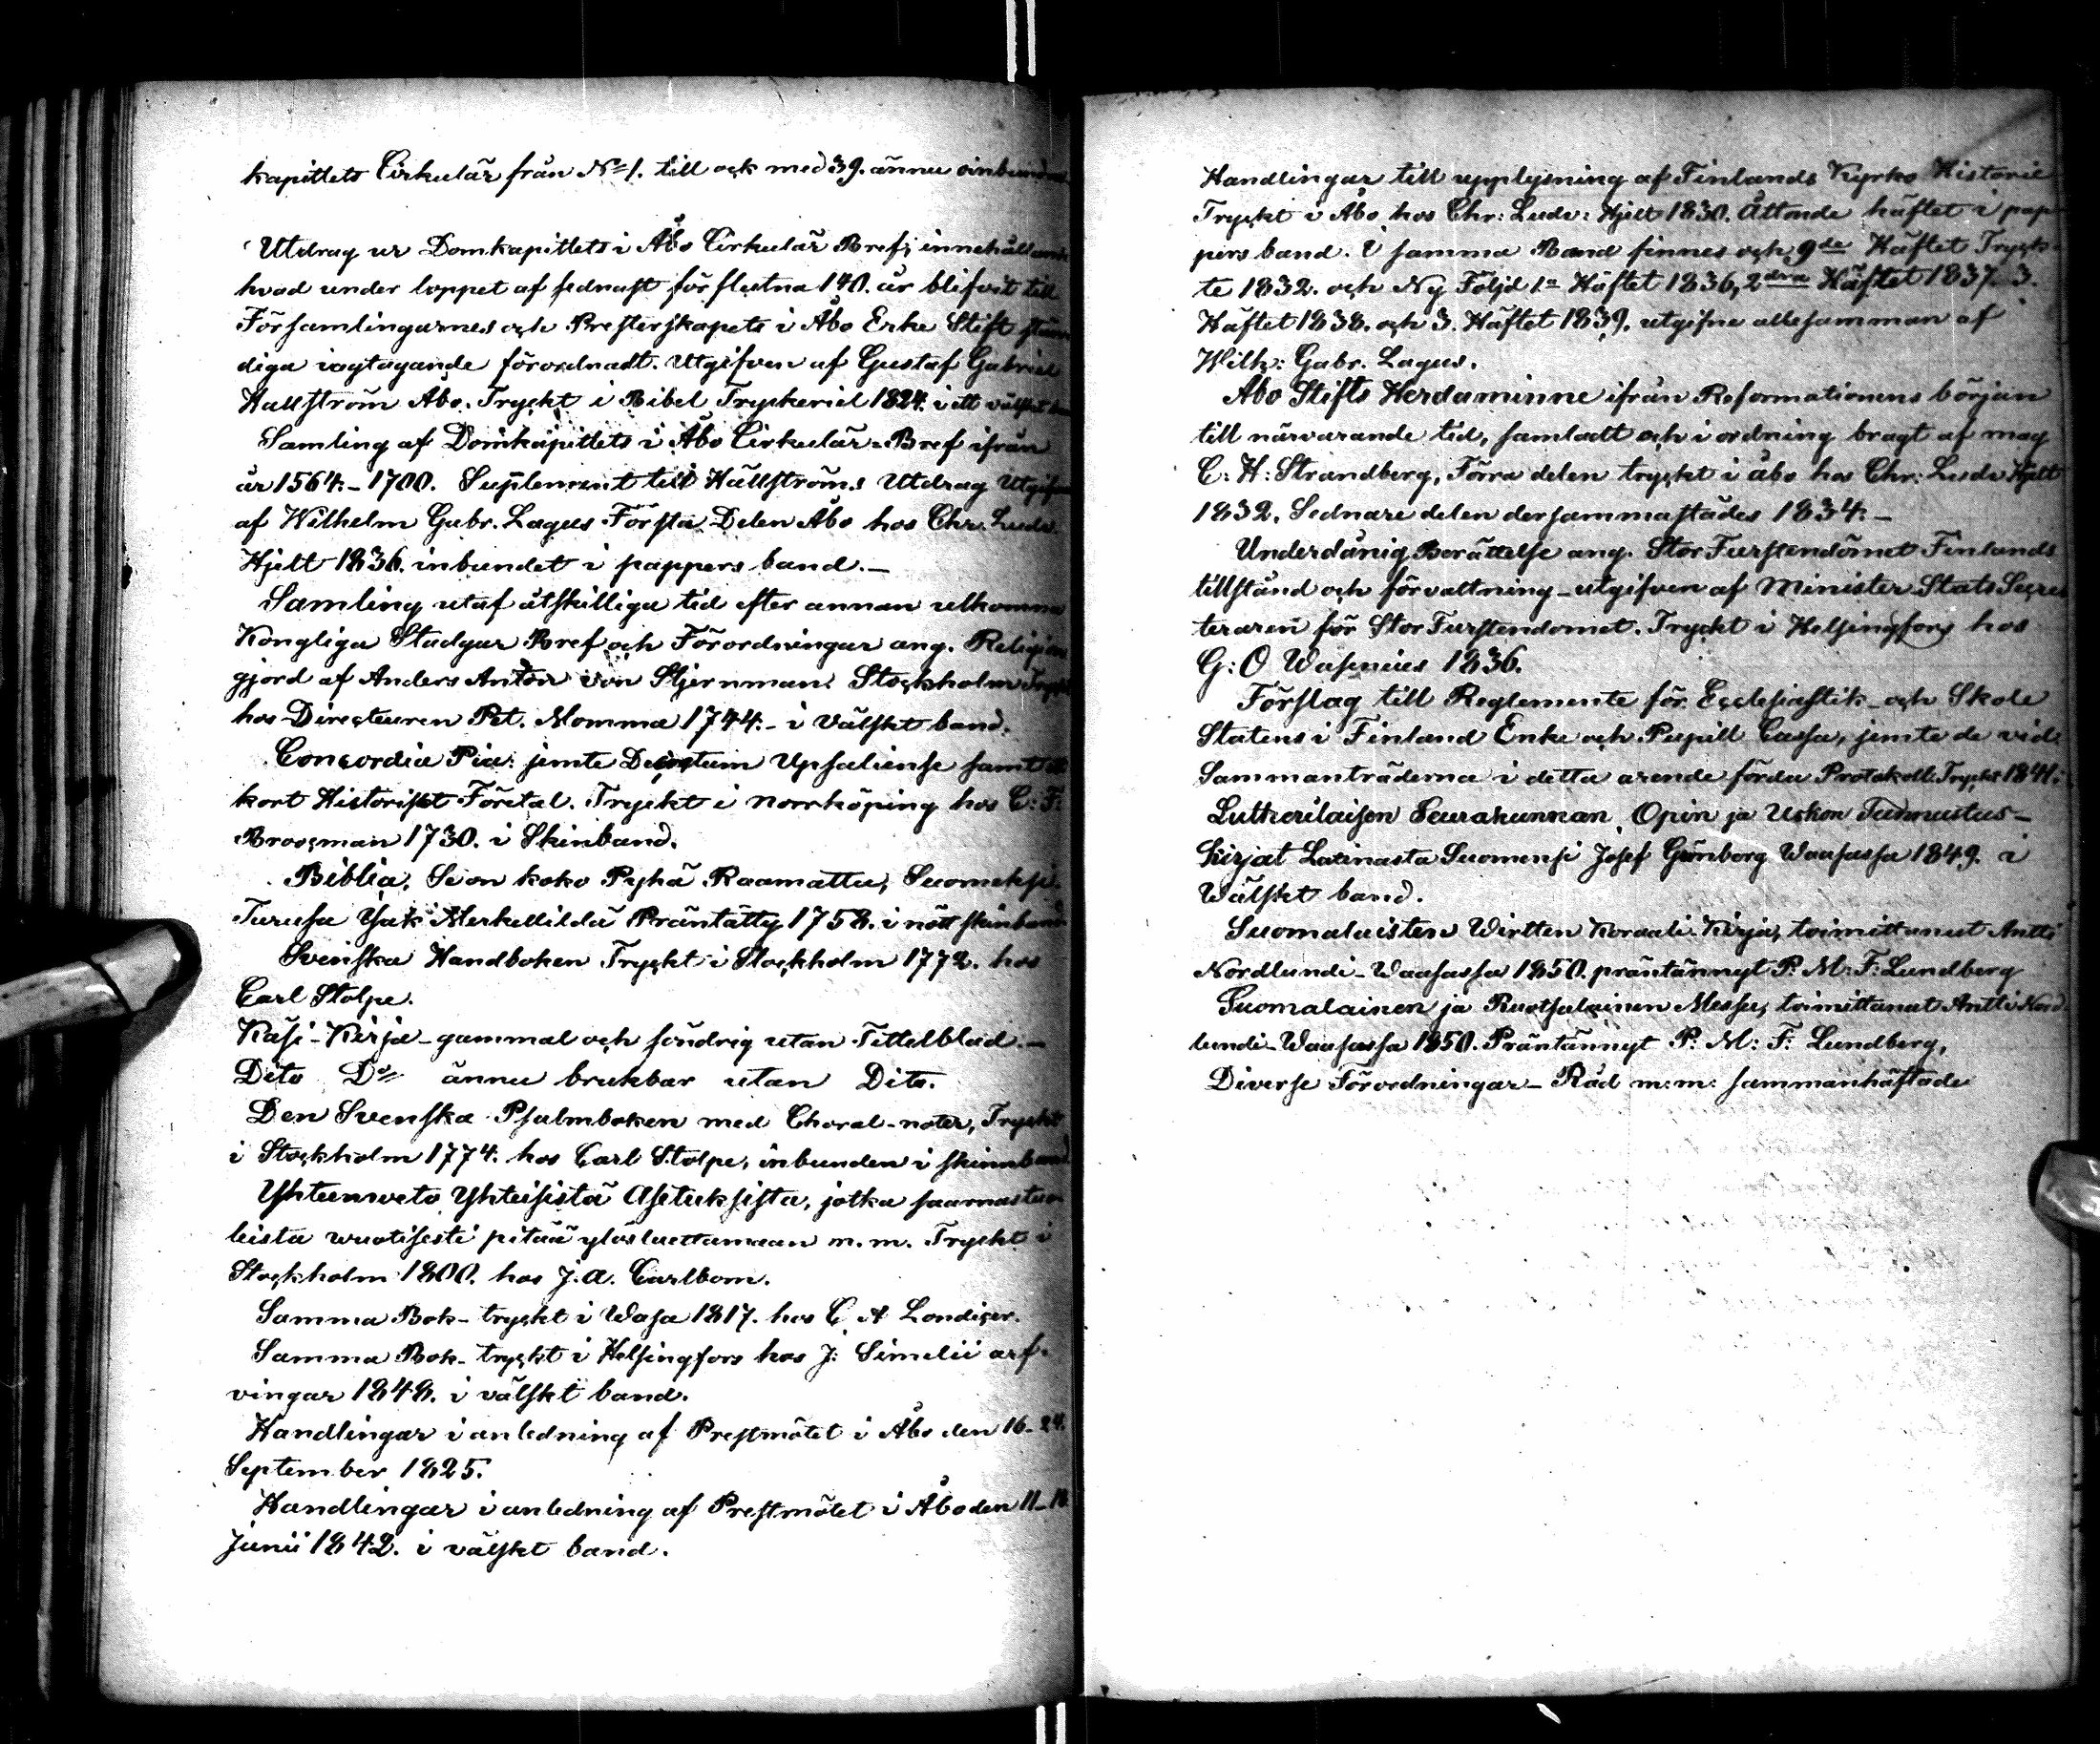 kapitlets Cirkulär från No 1. till och med 39. ännu oinbundna
Utdrag ur Domkapitlets i Åbo Cirkulär Bref; innehållande
hvad under loppet af sednast förflutna 140. år blifvit till
Församlingarnes och Presterskapets i Åbo Erke Stift stän
diga iagtagande förordnadt. Utgifven af Gustaf Gabriel
Hallström Åbo. Tryckt i Bibel Tryckeriet 1824. i ett välskt
Samling af Domkapitlets i Åbo Cirkulär-Bref ifrån
år 1564.-1700. Suplement till Hällströms Utdrag Utgifven
af Wilhelm Gabr. Lagus Första Delen Åbo hos Chr. Ludv.
Hjelt 1836. inbundet i pappers band.-
Samling utaf åtskilliga tid efter annan utkomna
Kongliga Stadgar Bref och Förordningar ang. Religion
gjord af Anders Anton von Stjernman. Stockholm Tryckt
hos Directeuren Pet. Momma 1744.- i Välskt band.
Concordia Pia: jemte Decretum Upsaliense samt ett
kort Historiskt Företal. Tryckt i Norrköping hos C: F:
Brocman 1730. i Skinband.
Biblia, Se on koko Pyhä Raamattu, Suomeksi.
Turusa Jsak Merkellildä Präntätty 1758. i nött skinband
Svenska Handboken Tryckt i Stockholm 1772. hos
Carl Stolpe.
Käsi-Kirja-gammal och söndrig utan Tittelblad.-
Dito Do ännu brukbar utan Dito.
Den Svenska Psalmboken med Choral-noter, Tryckt
i Stockholm 1774. hos Carl Stolpe, inbunden i skinnband
Yhteenweto Yhteisistä Asetuksista, jotka saarnastuo
leista wuotisesti pitää ylösluettamaan m.m. Tryckt i
Stockholm 1800. hos J. A. Carlbom.
Samma Bok- tryckt i Wasa 1817. hos C A Londicer.
Samma Bok- tryckt i Helsingfors hos J: Simelii arf-
vingar 1848. i välskt band.
Handlingar i anledning af Prestmötet i Åbo den 16-24.
September 1825.
Handlingar i anledning af Prestmötet i Åbo den 11-18
Junii 1842. i välskt band.
Handlingar till upplysning af Finlands Kyrko Historie
Tryckt i Åbo hos Chr: Ludv: Hjelt 1830. Åttonde häftet i pap
pers band. I samma Band finnes och 9de Häftet Tryck-
te 1832. och Ny Följd 1a Häftet 1836, 2dra Häftet 1837. 3.
Häftet 1838. och 3. Häftet 1839. utgifne allesamman af
Wilh: Gabr. Lagus.
Åbo Stifts Herdaminne ifrån Reformationens början
till närvarande tid, samladt och i ordning bragt af mag
C: H: Strandberg, Förra delen tryckt i åbo hos Chr. Ludv Hjelt
1832. Sednare delen dersammastädes 1834.-
Underdånig Berättelse ang. Stor Furstendömet Finlands
tillstånd och förvaltning-utgifven af Minister Stats Secre
teraren för Stor Furstendomet. Tryckt i Helsingfors hos
G: O Wasenius 1836.
Förslag till Reglemente för Ecclesiastik- och Skole
Statens i Finland Enke och Pupill Cassa, jemte de vid
Sammanträderna i detta ärende förda Protokoll. Tryckt 1841.
Lutherilaisen Seurakunnan Opin ja Uskon Tunnustus-
kirjat Latinasta Suomensi Josef Grönborg Waasassa 1849. i
Wälskt band.
Suomalaisten Wirtten Koraali Kirja, toimittanut Antti
Nordlundi-Waasassa 1850. präntännyt P. M: F: Lundberg
Suomalainen ja Ruotsalainen Messu, toimittanut Antti Nord
lundi-Waasassa 1850. Präntännyt P. M: F: Lundberg,
Diverse Förordningar- Råd m:m: sammanhäftade